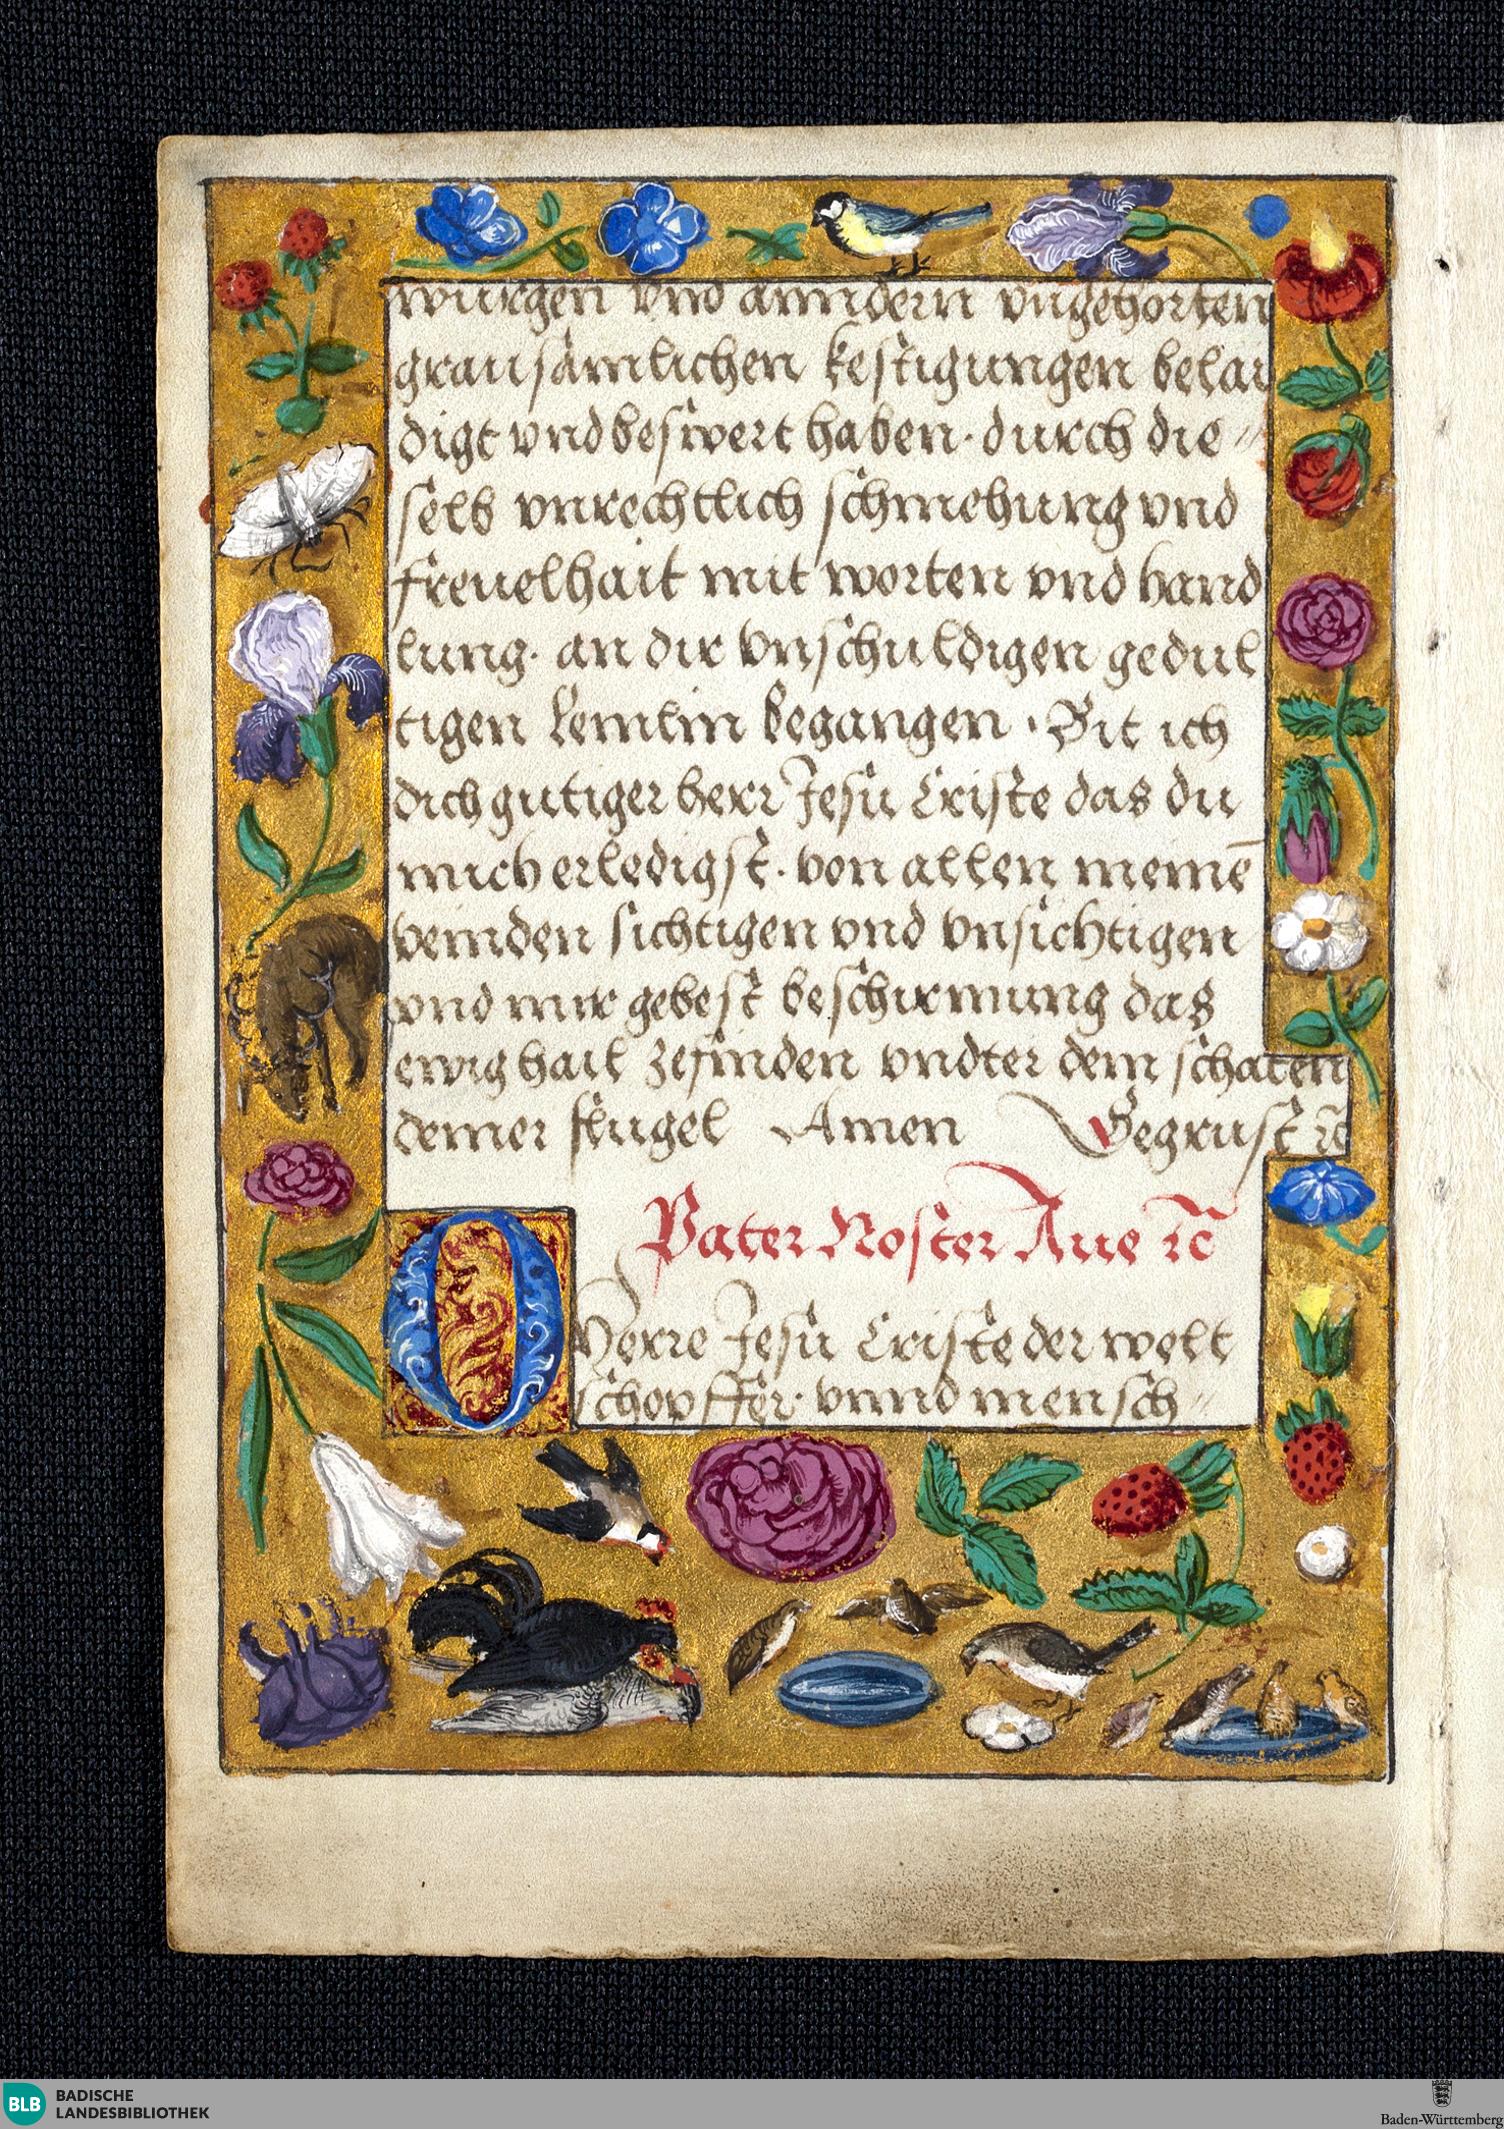 wurgen vnd anndern vngehorten
grausamlichen kestigungen belai
digt vnd beswert haben · durch die〃
selb vnrechtlich schmehung vnd
freuelhait mit worten vnd hand
lung · an dir vnschuldigen gedul
tigen Lemlin begangen · Bit ich
dich gutiger herr Jesu Criste das du
mich erledigst · von allen meinē
veinden sichtigen vnd vnsichtigen
vnd mir gebest beschirmung das
ewig hail zefinden vndter dem schaten
deiner flugel Amen Gegrust ꝛc
Pater Noster Aue ꝛc
O Herre Jesu Criste der welt
schopffer · vnnd mensch〃
BLB BADISCHE
LANDESBIBLIOTHEK
Baden-Württemberg